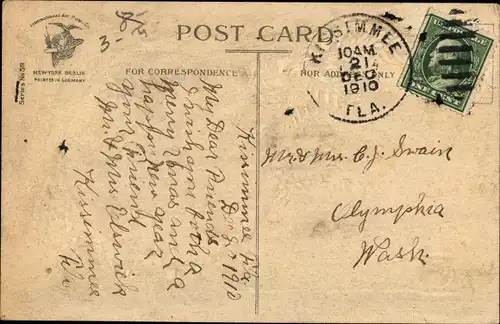 POST CARD
International Art Publ. Co.
NEW YORK BERLIN
PRINTED IN GERMANY
Series No 58
FOR CORRESPONDENCE
FOR ADDRESS ONLY
KISSIMMEE
10 AM
21
DEC
1910
FLA.
Kissimmee Fla
Dec 20 1910
My Dear Friends
I wish you both a
Merry Xmas and a
happy New year
your friends
Mr & Mrs
Kissimmee
Fla
Mr & Mrs. C. J. Swain
Olymphia
Wash.